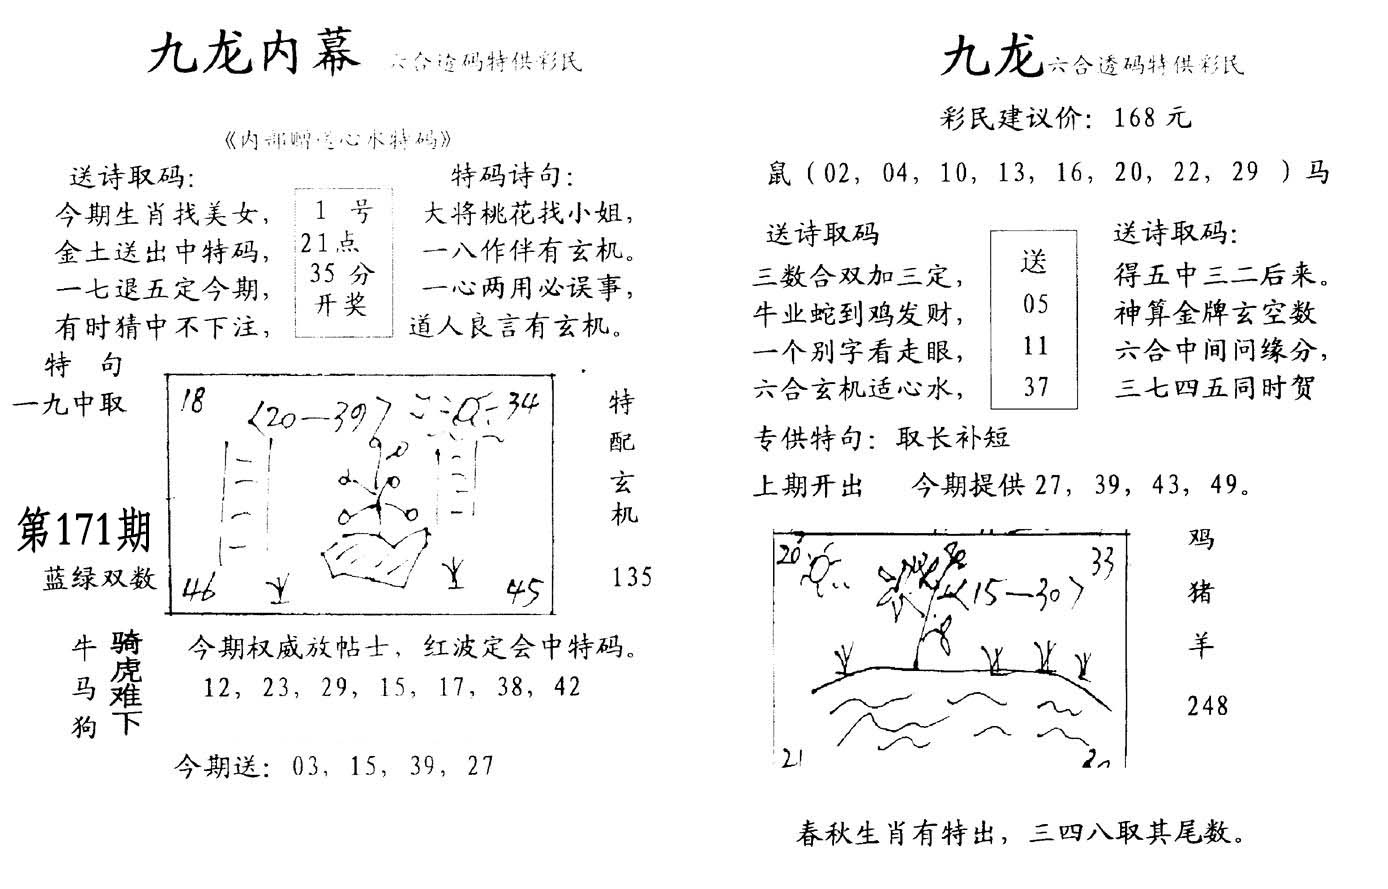 九龙内幕 六合透码特供彩民
《内部赠送心水特码》
送诗取码:
今期生肖找美女,
金土送出中特码,
一七退五定今期,
有时猜中不下注,
1 号
21点
35 分
开奖
特码诗句:
大将桃花找小姐,
一八作伴有玄机。
一心两用必误事,
道人良言有玄机。
特 句
一九中取
第171期
蓝绿双数
18
〈20—39〉
34
46
45
特配玄机
135
牛马狗
骑虎难下
今期权威放帖士, 红波定会中特码。
12, 23, 29, 15, 17, 38, 42
今期送: 03, 15, 39, 27
九龙 六合透码特供彩民
彩民建议价: 168 元
鼠 ( 02, 04, 10, 13, 16, 20, 22, 29 ) 马
送诗取码
三数合双加三定,
牛业蛇到鸡发财,
一个别字看走眼,
六合玄机适心水,
送
05
11
37
送诗取码:
得五中三二后来。
神算金牌玄空数
六合中间问缘分,
三七四五同时贺
专供特句: 取长补短
上期开出 今期提供 27, 39, 43, 49。
20
33
〈15—30〉
21
鸡
猪
羊
248
春秋生肖有特出, 三四八取其尾数。